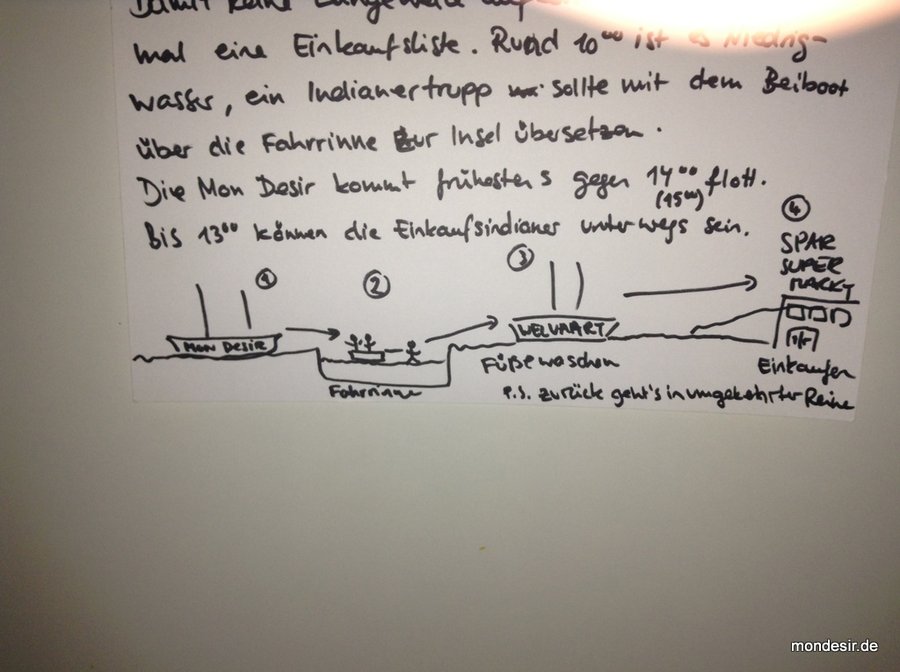 Damit keine Langeweile
mal eine Einkaufsliste. Rund 10⁰⁰ ist es Niedrig-
wasser, ein Indianertrupp sollte mit dem Beiboot
über die Fahrrinne zur Insel übersetzen.
Die Mon Desir kommt frühestens gegen 14⁰⁰ flott.
(15⁰⁰)
Bis 13⁰⁰ können die Einkaufsindianer unterwegs sein.
① ② ③ ④
SPAR
SUPER
MARKT
MON DESIR
WELVAART
Füße waschen
Einkaufen
Fahrrinne
P.S. zurück geht's in umgekehrter Reihe
mondesir.de